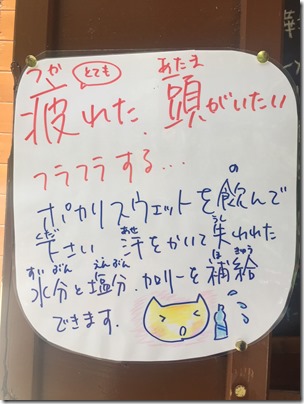 つか とても あたま
疲れた. 頭がいたい
フラフラする...
の
ポカリスウェットを飲んで
くだ あせ うし
下さい 汗をかいて失われた
すいぶん えんぶん ほ きゅう
水分と塩分.カロリーを補給
できます.